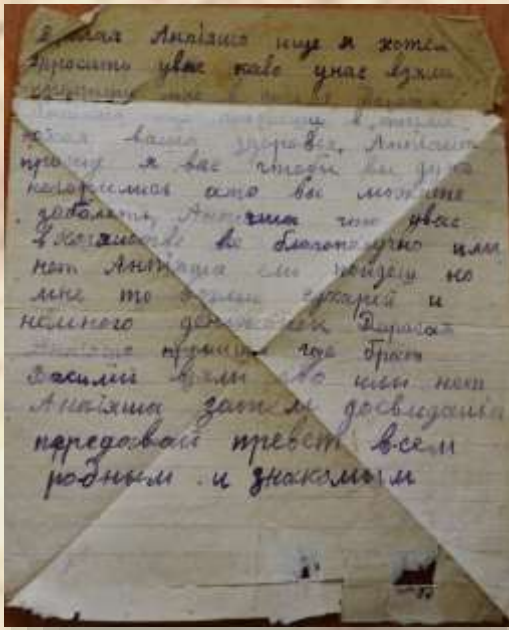 Анъяша ище я хотел
спросить увас каво унас взяли
ваша здоровья, Анъяша
прошу я вас чтобы вы дужа
негорились ато вы можете
заболеть, Анъяша что увас
в хозяистве все благополучно или
нет Анъяша пойдеш ко
мне то сухарей и
немного Дарагая
Анъяша где брат
Василий взяли ево или нет
Анъяша затем досвидания
передавай превет всем
родным и знакомым